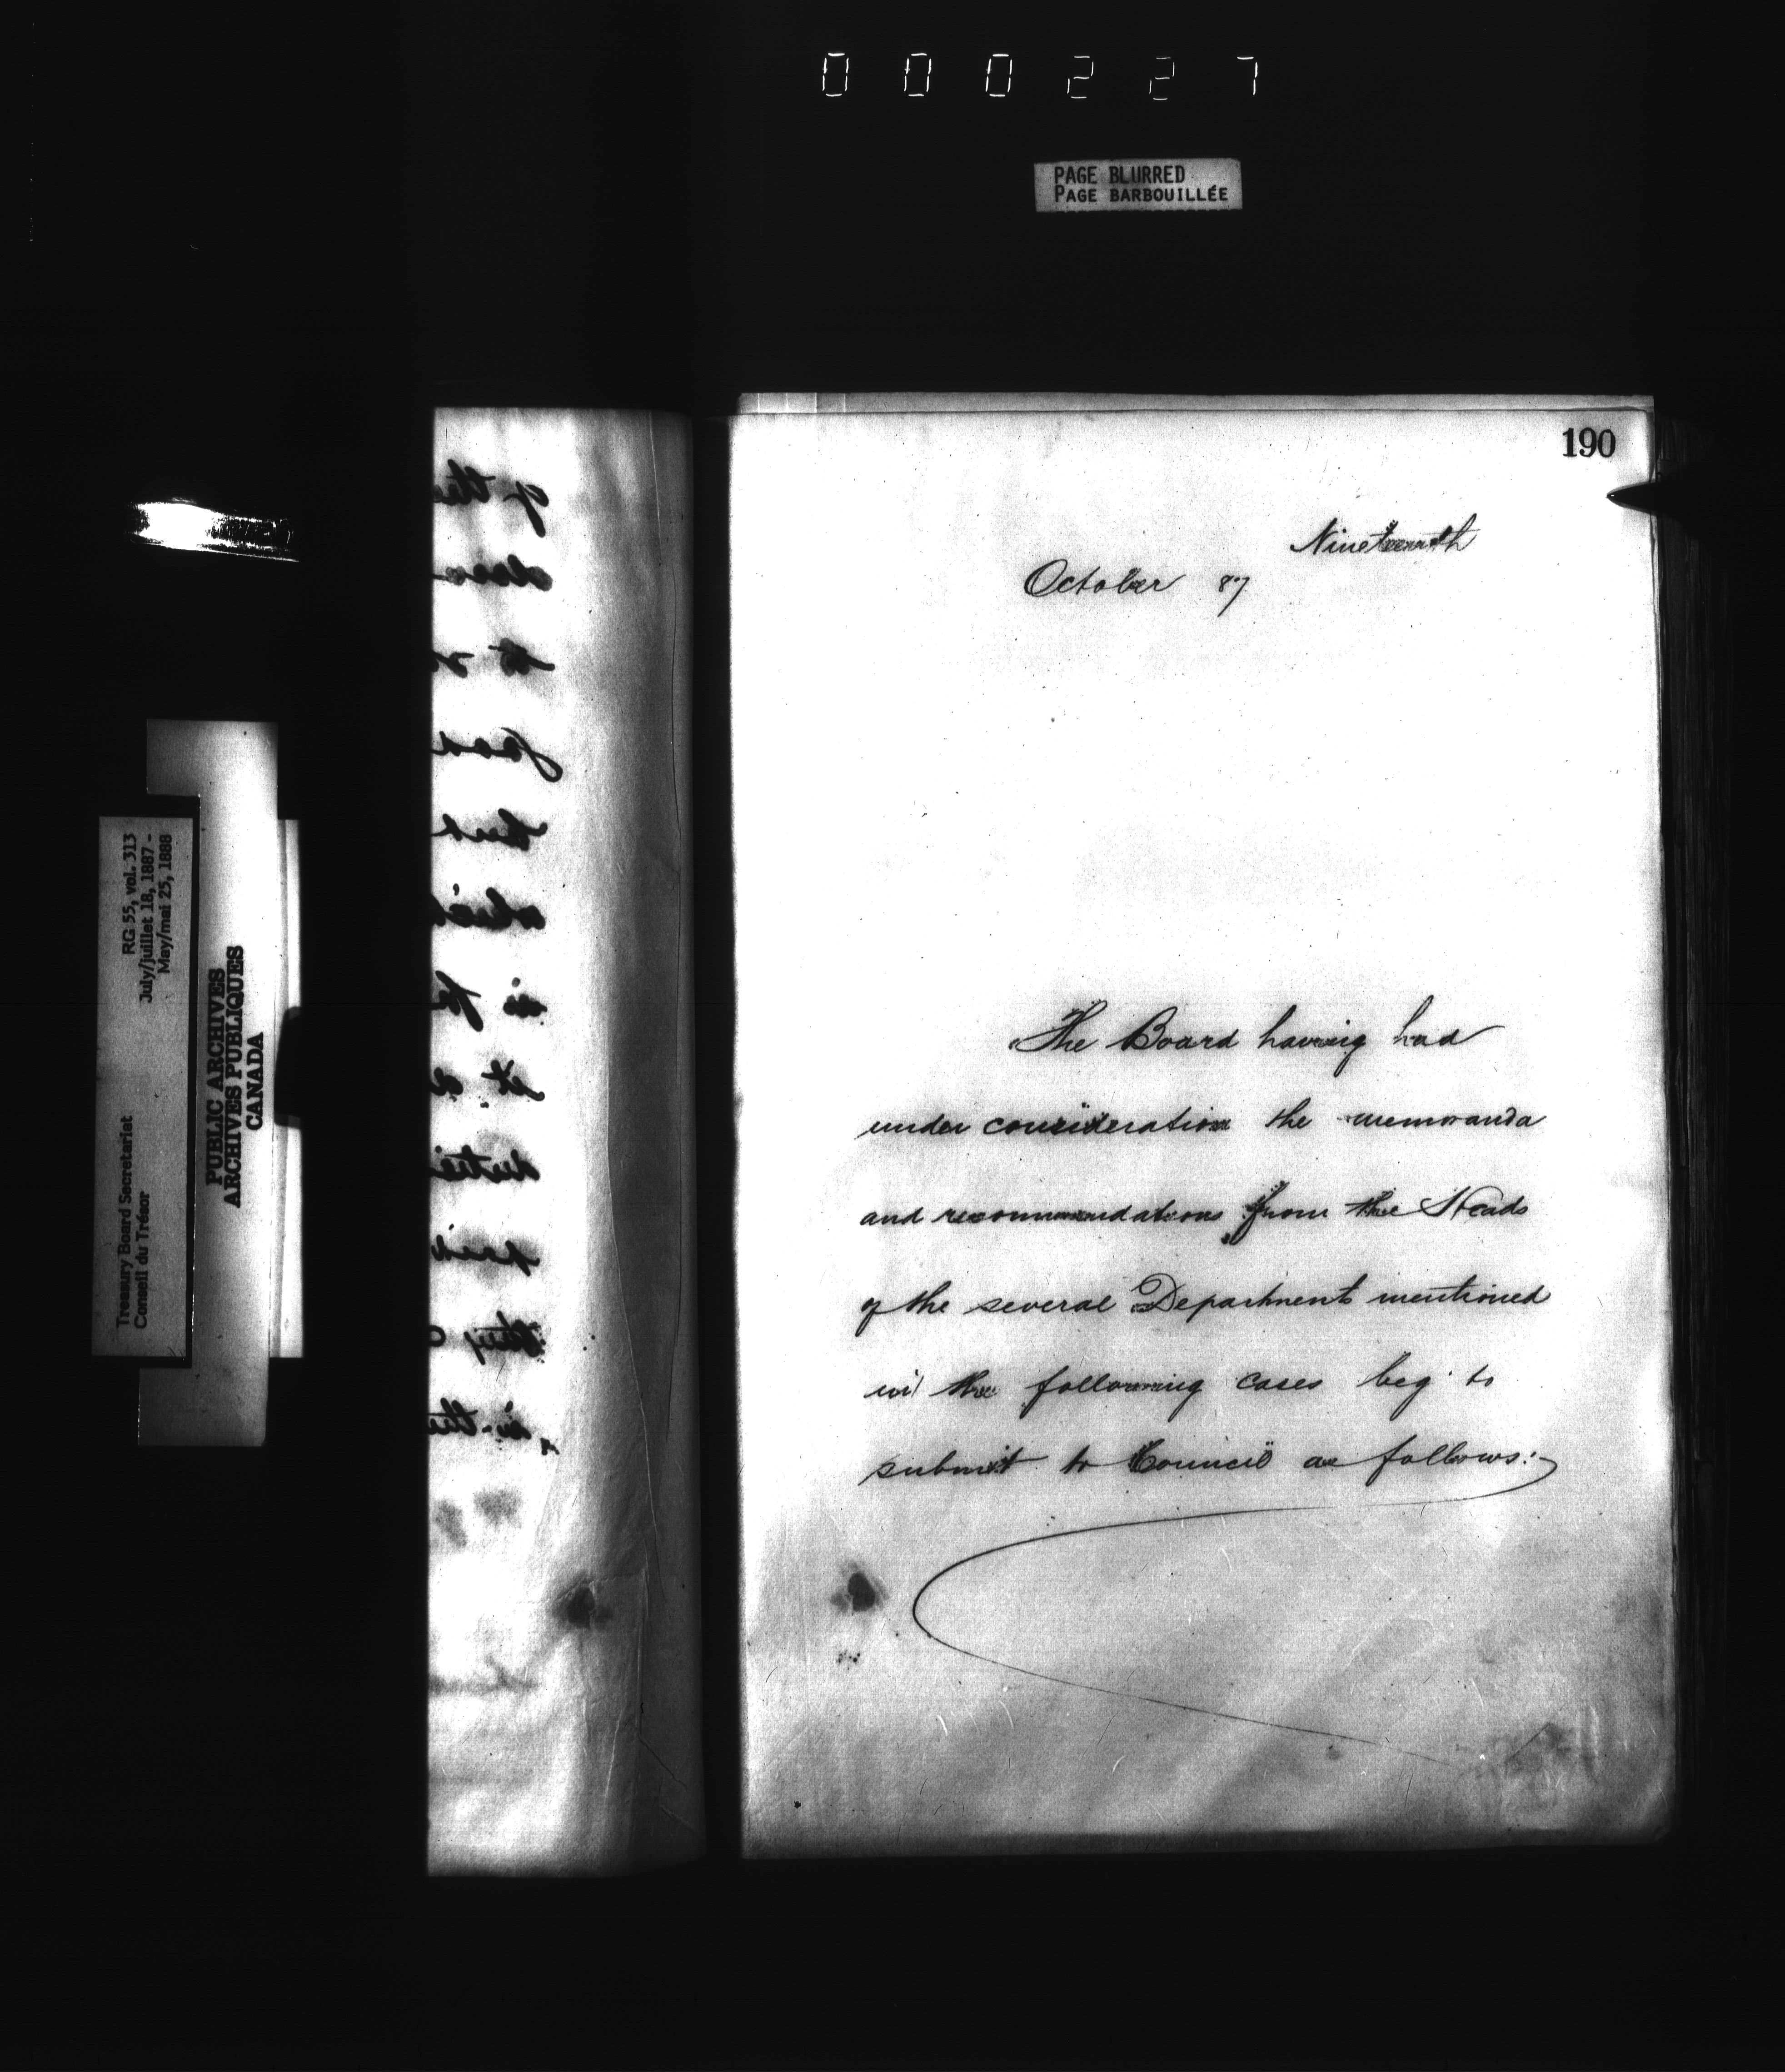 000227
PAGE BLURRED
PAGE BARBOUILLÉE
190
Nineteenth
October 87
The Board having had
under consideration the memoranda
and recommendations from the Heads
of the several Departments mentioned
in the following cases beg to
submit to Council as follows:-
RG 55, vol. 313
July/juillet 18, 1887 -
May/mai 25, 1888
Treasury Board Secretariat
Conseil du Trésor
PUBLIC ARCHIVES
ARCHIVES PUBLIQUES
CANADA
of the
to
which
in the